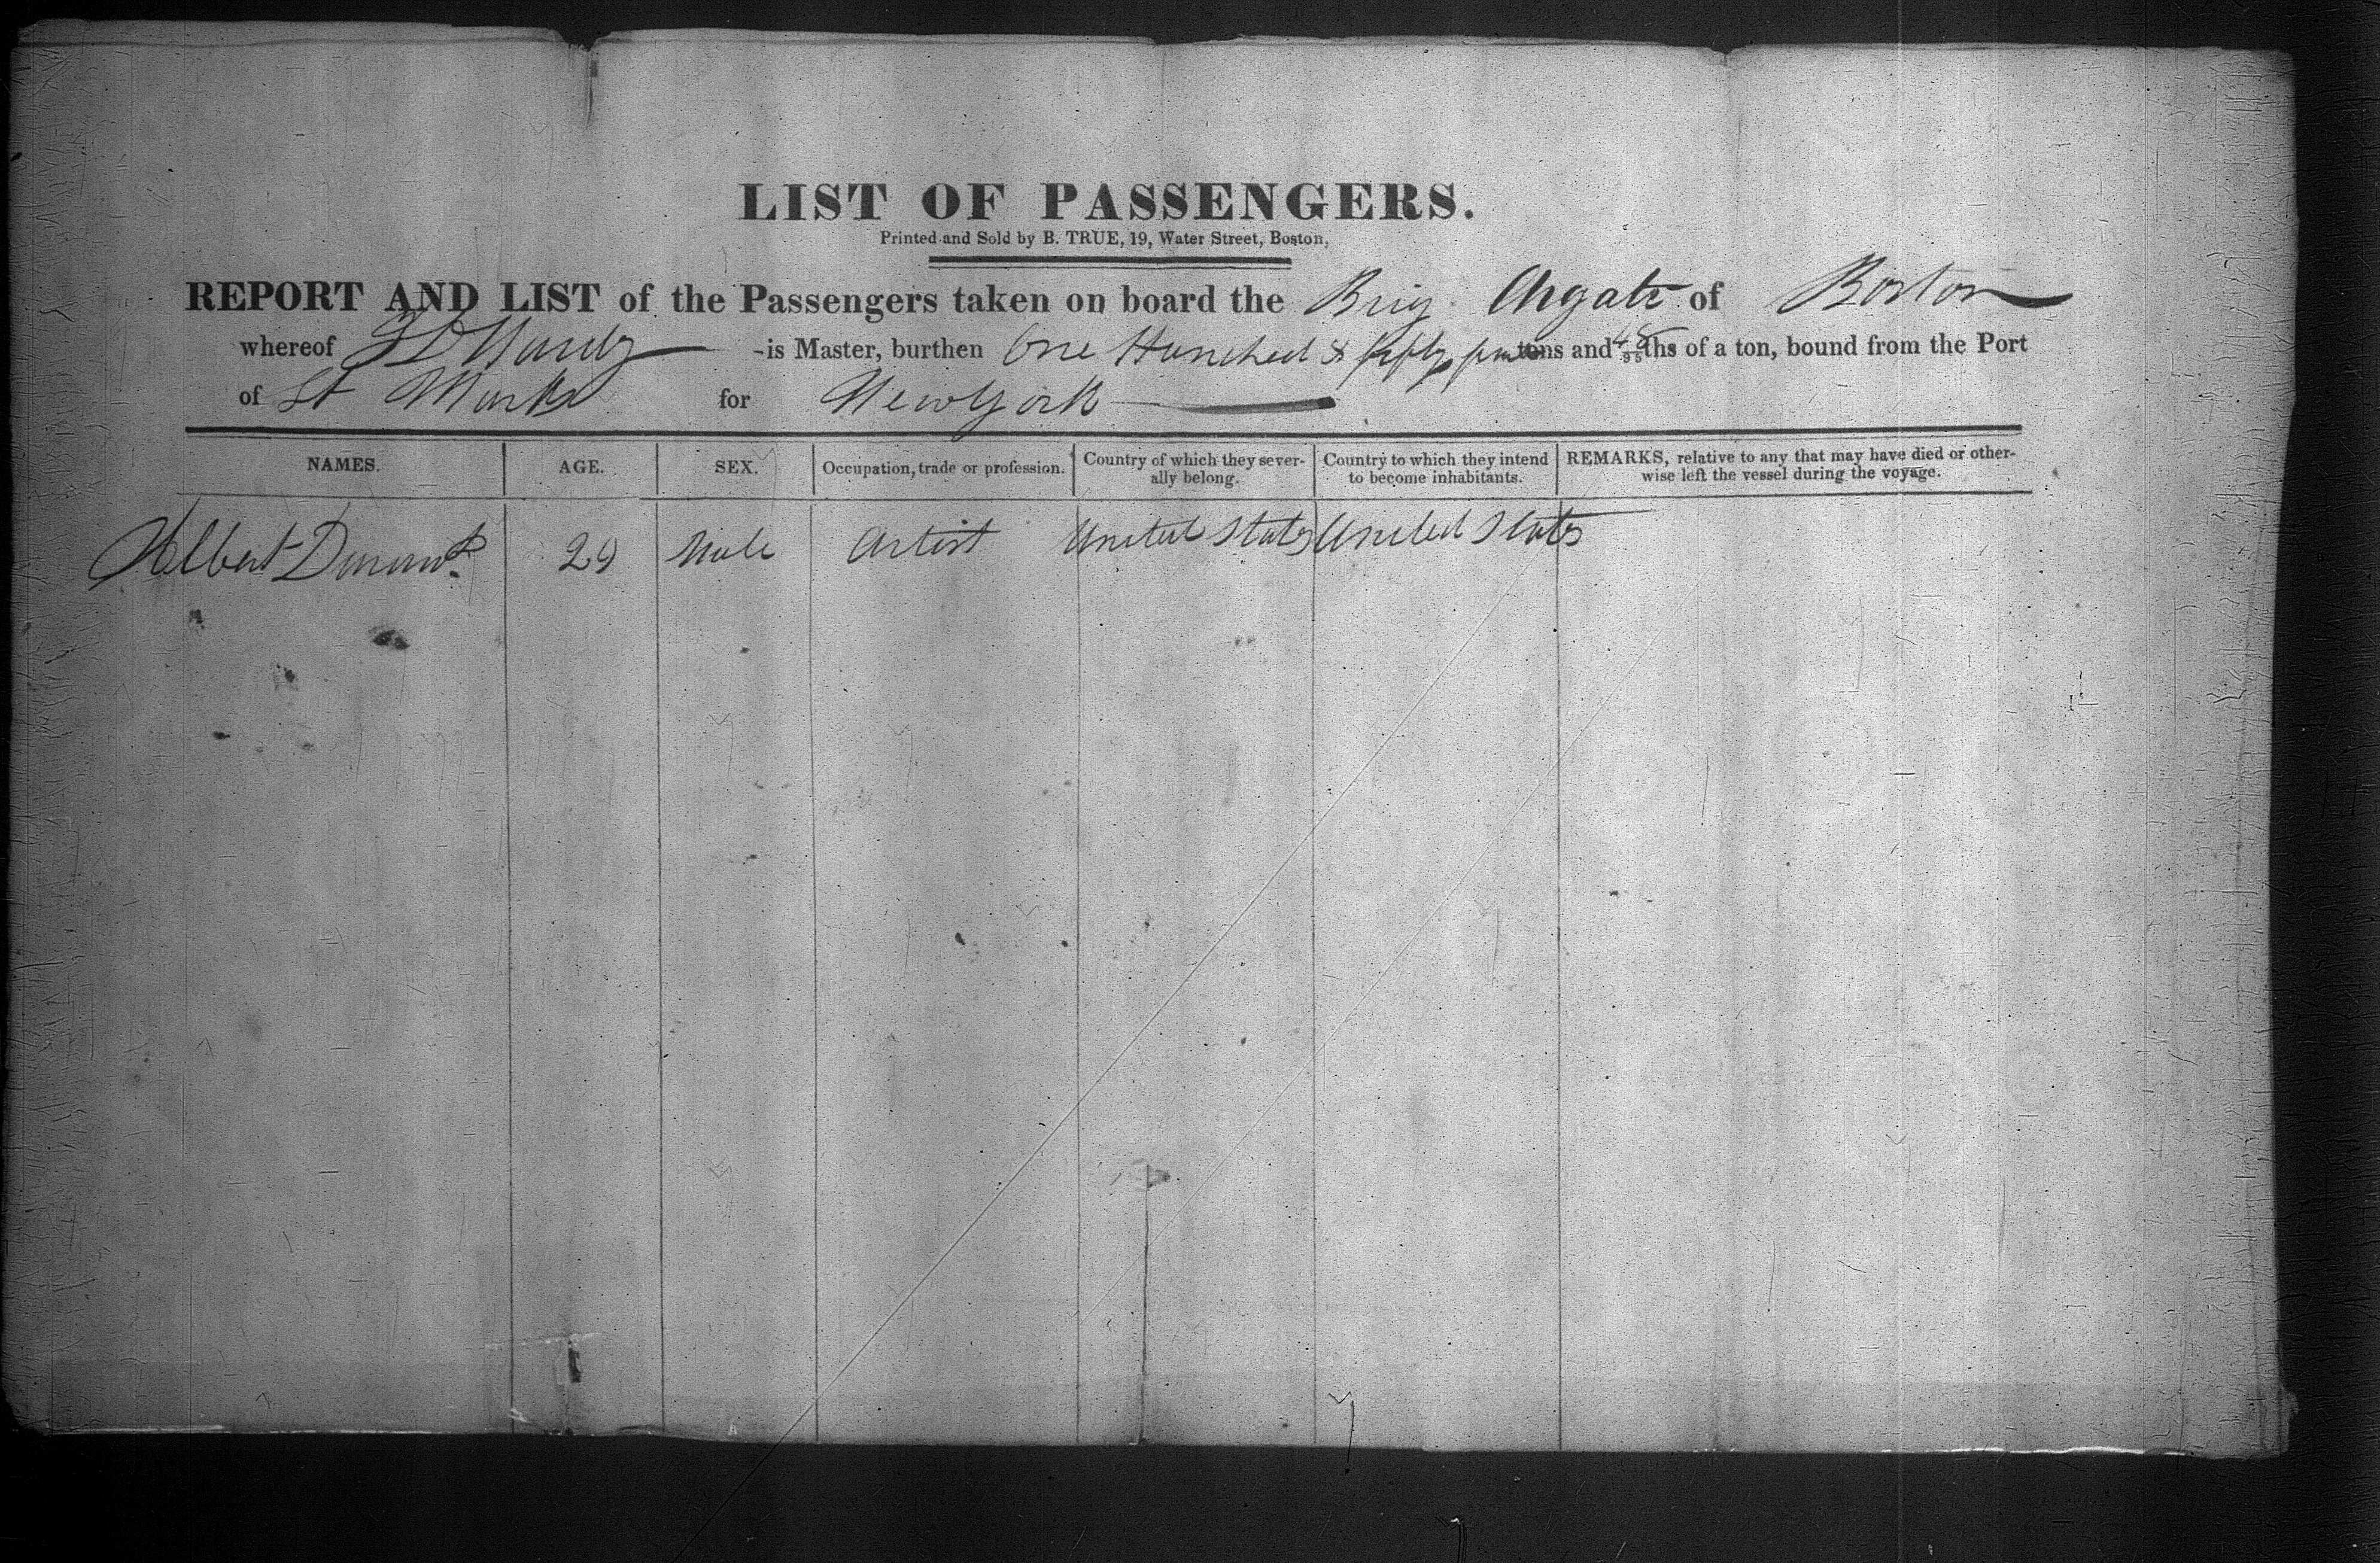 LIST OF PASSENGERS.
Printed and Sold by B. TRUE, 19, Water Street, Boston,
REPORT AND LIST of the Passengers taken on board the Brig of Boston
whereof Hardy is Master, burthen One Hundred & fifty tons and 48/95ths of a ton, bound from the Port
of St Marks for New York
NAMES. AGE. SEX. Occupation, trade or profession. Country of which they severally belong. Country to which they intend to become inhabitants. REMARKS, relative to any that may have died or otherwise left the vessel during the voyage.
Albert 29 Male Artist United States United States